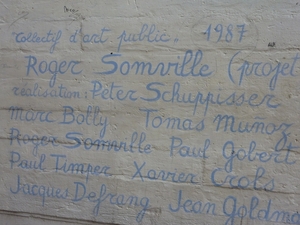 collectif d'art public. 1987
Roger Somville (projet
réalisation: Peter Schuppisser
Marc Bolly Tomas Munoz
Roger Somville Paul Gobert
Paul Timper Xavier Crols
Jacques Defrang Jean Goldma